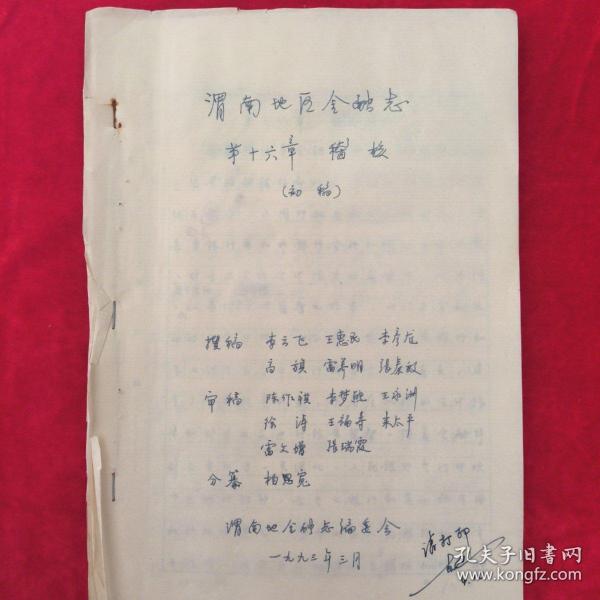 渭南地区金融志
第十六章 稽核
(初稿)
撰稿 李云飞 王惠民 李彦龙
高旗 雷养明
审稿 陈作祺 李梦驰 王永洲
徐涛 王福寿 朱太平
雷文增 张瑞霞
分纂 杨思宽
渭南地金融志编委会
一九九三年三月
请打印
孔夫子旧书网
www.kongfz.com